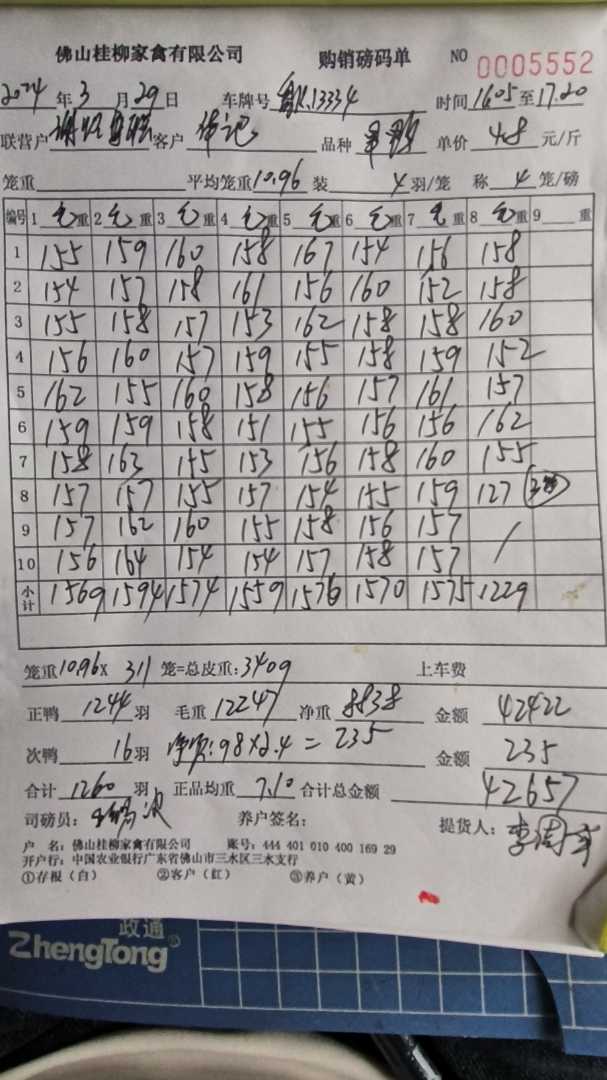 佛山桂柳家禽有限公司 购销磅码单 NO 0005552
2024年3月29日 车牌号 K.13334 时间1605至17.20
联营户 客户 伟记 品种 单价 4.8 元/斤
笼重 平均笼重10.96 装 4 羽/笼 称 4 笼/磅
编号 1 毛重 2 毛重 3 毛重 4 毛重 5 毛重 6 毛重 7 毛重 8 毛重 9 重
1 155 159 160 158 167 154 156 158
2 154 157 158 161 156 160 152 158
3 155 158 157 153 162 158 158 160
4 156 160 157 159 155 158 159 152
5 162 155 160 158 156 157 161 157
6 159 159 158 151 155 156 156 162
7 158 163 155 153 156 158 160 155
8 157 157 155 157 154 155 159 127
9 157 162 160 155 158 156 157 /
10 156 164 154 154 157 158 157 /
小计 1569 1594 1574 1559 1576 1570 1575 1229
笼重10.96x 311 笼=总皮重:3409 上车费
正鸭 1244 羽 毛重 12247 净重 8838 金额 42422
次鸭 16羽 净重:98×2.4=235 金额 235
合计 1260 羽 正品均重 7.10 合计总金额 42657
司磅员: 养户签名: 提货人:
户 名:佛山桂柳家禽有限公司 账号:444 401 010 400 169 29
开户行:中国农业银行广东省佛山市三水区三水支行
①存根(白) ②客户(红) ③养户(黄)
政通
ZhengTong®